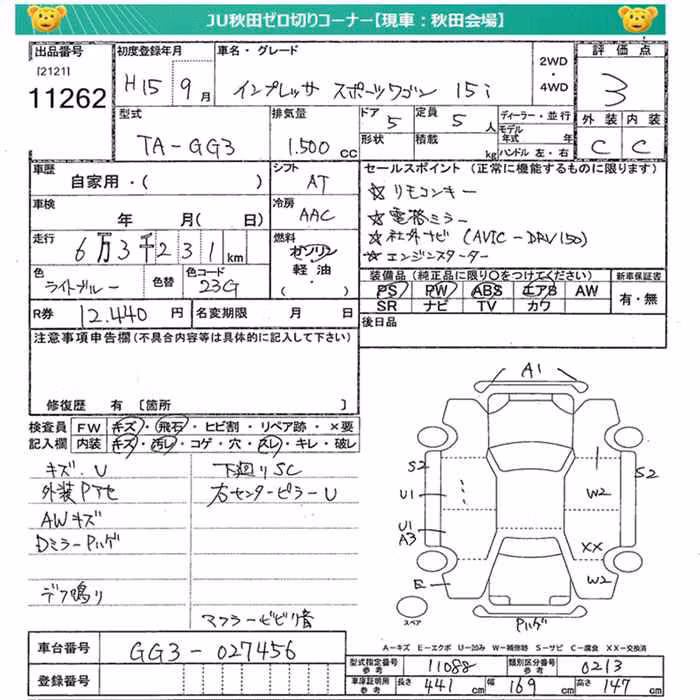 JU秋田ゼロ切りコーナー【現車：秋田会場】
出品番号 初度登録年月 車名・グレード 2WD ・ 4WD 評価点
[2121]
11262 H15 9月 インプレッサ スポーツワゴン 15i 3
型式 排気量 ドア 定員 ディーラー・並行 外装 内装
TA-GG3 1.500cc 5 5人 モデル年式 年 C C
形状 積載 kg ハンドル 左・右
車歴 シフト セールスポイント（正常に機能するものに限ります）
自家用・( ) AT ☆リモコンキー
車検 年 月(日) 冷房 AAC ☆電格ミラー
走行 6万3千231km 燃料 ガソリン・軽油・( ) ☆社外ナビ (AVIC-DRV150)
☆エンジンスターター
色 ライトブルー 色替 色コード 23G 装備品（純正品に限り○をつけてください） 新車保証書
PS PW ABS エアB AW 有・無
SR ナビ TV カワ
R券 12.440円 名変期限 月 日 後日品
注意事項申告欄(不具合内容等は具体的に記入して下さい)
修復歴 有 〔箇所 〕
検査員 FW キズ・飛石・ヒビ割・リペア跡・×要
記入欄 内装 キズ・汚レ・コゲ・穴・スレ・キレ・破レ
キズ.U 下廻りSC
外装Pアセ 右センターピラーU
AWキズ
DミラーPハゲ
デフ鳴り
マフラービビリ音
A1
S2 S2
U1 W2
U1
A3 XX
E W2
スペア Pハゲ
A－キズ E－エクボ U－凹み W－補修跡 S－サビ C－腐食 XX－交換済
車台番号 GG3-027456
登録番号
型式指定番号 参考 11088 類別区分番号 参考 0213
車庫証明用 参考 長さ 441cm 幅 169cm 高さ 147cm